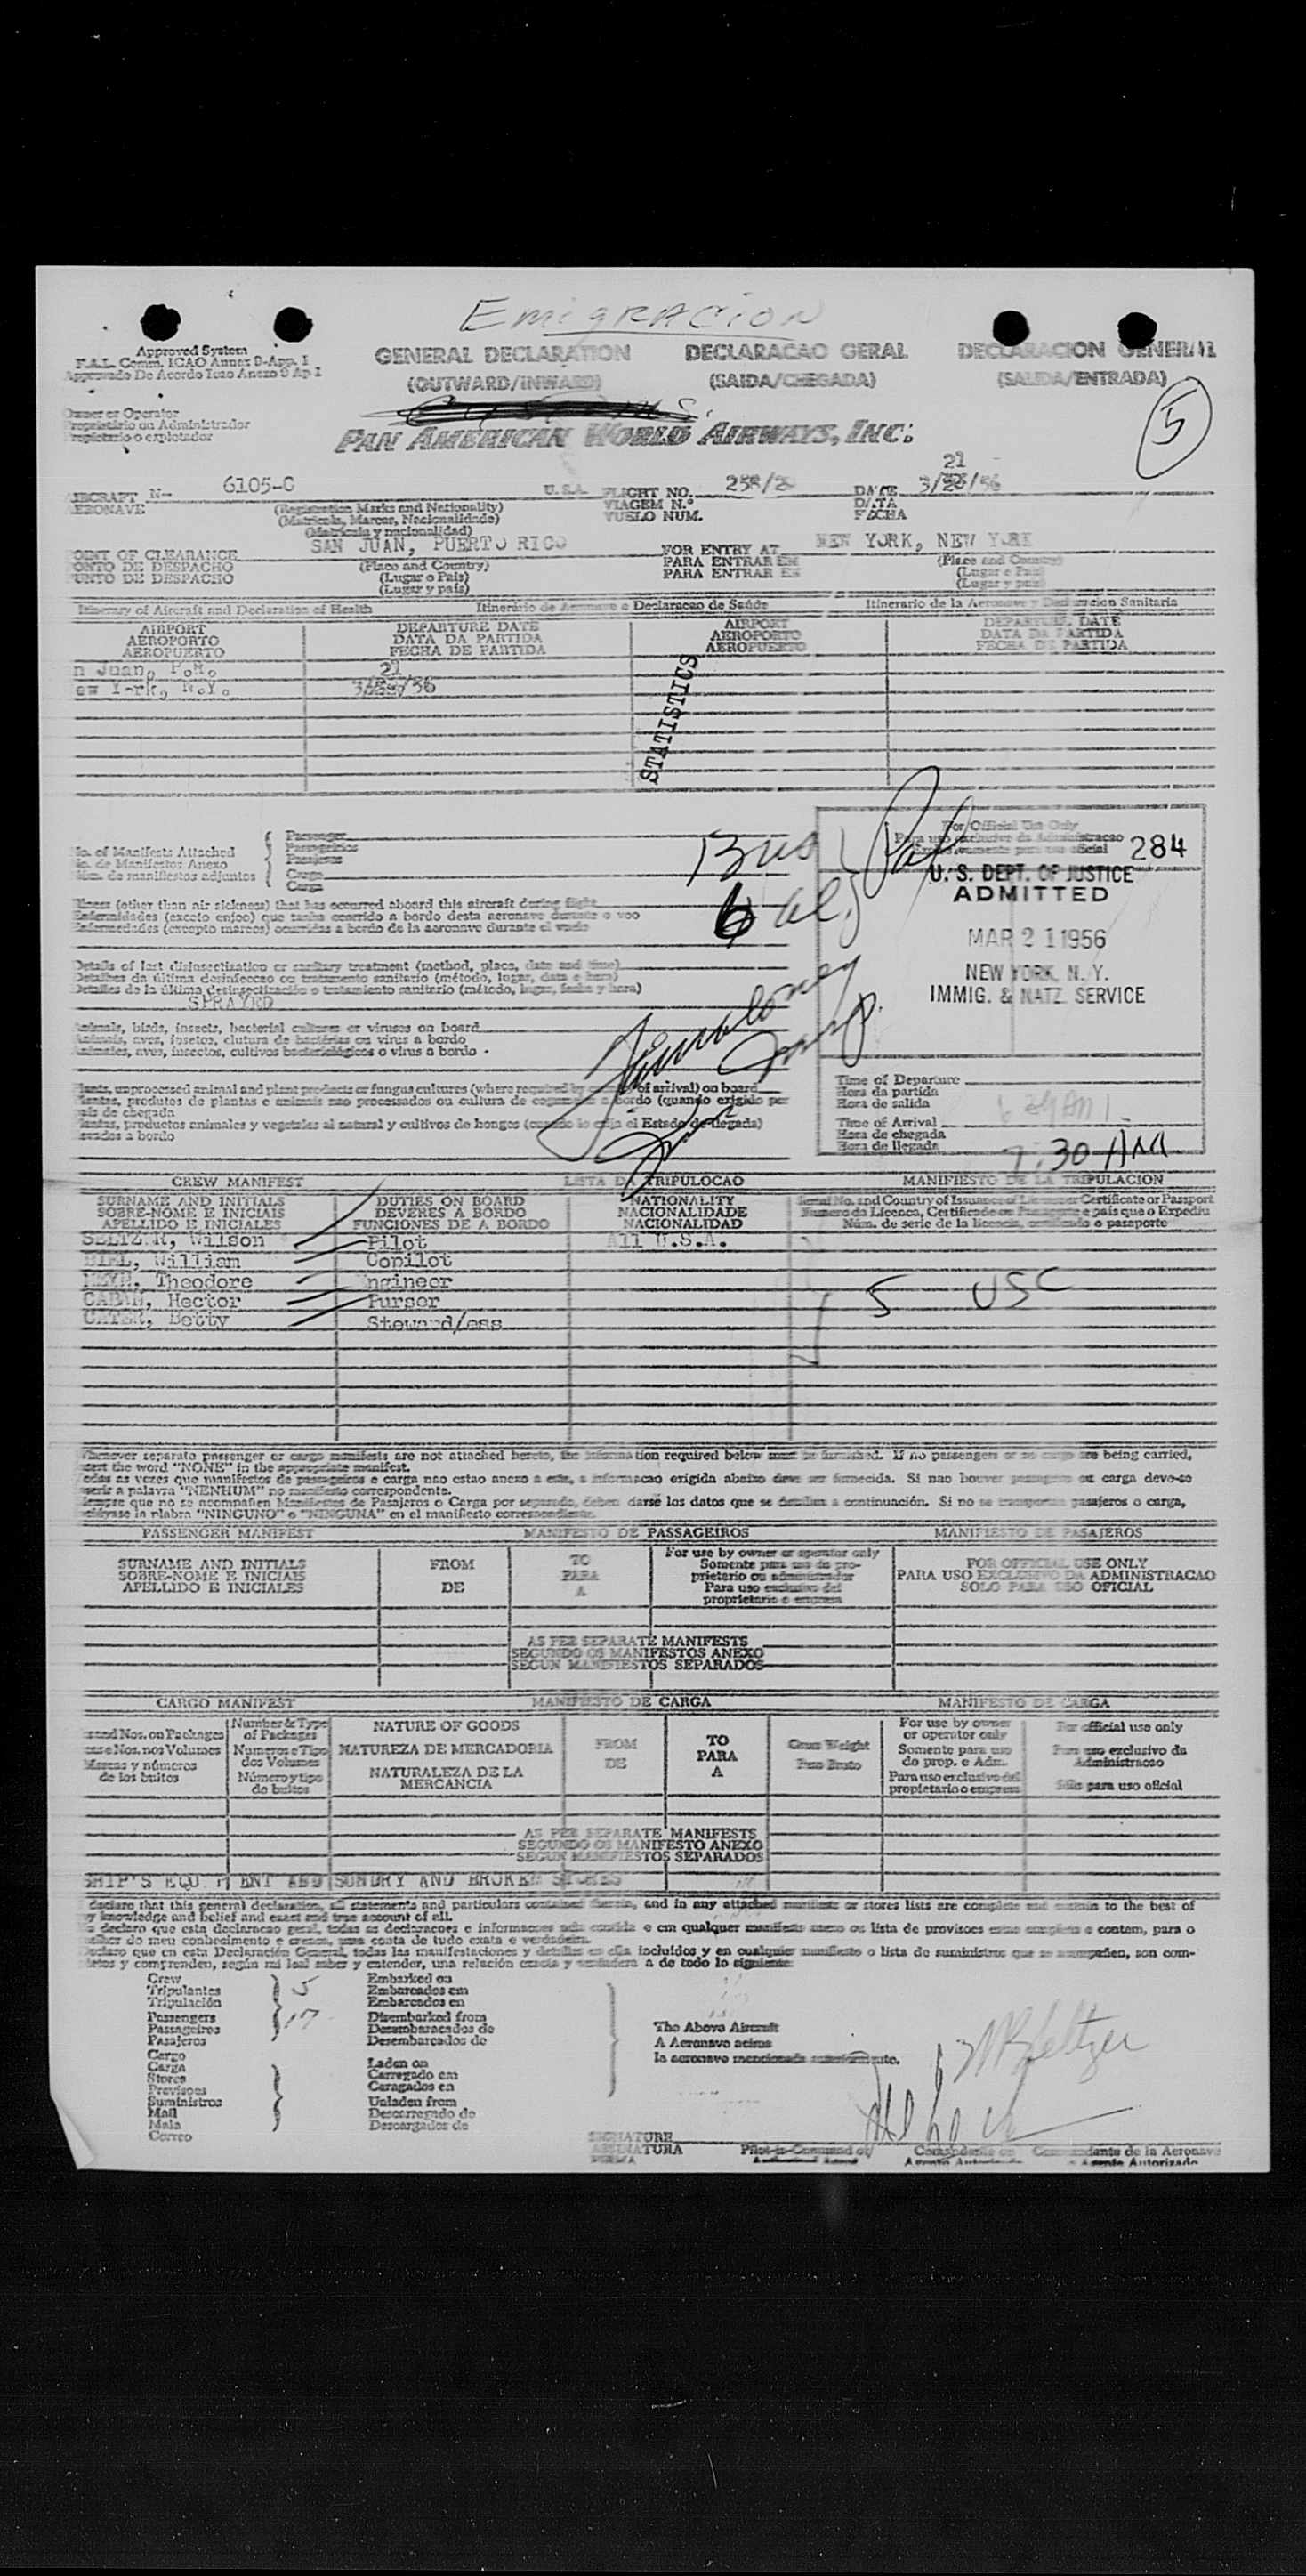 EmigRACion
Approved System
F.A.L. Comm. ICAO Annex 9-App. 1
GENERAL DECLARATION DECLARACAO GERAL DECLARACION GENERAL
(OUTWARD/INWARD) (SAIDA/CHEGADA) (SALIDA/ENTRADA)
5
Owner or Operator
Proprietário ou Administrador
Propietario o explotador
PAN AMERICAN WORLD AIRWAYS, INC.
AIRCRAFT N- 6105-C U.S.A. FLIGHT NO. DATE 21
AERONAVE (Registration Marks and Nationality) VIAGEM N.º DATA
(Matricula, Marcas, Nacionalidade) VUELO NUM. FECHA
(Matricula y nacionalidad)
POINT OF CLEARANCE SAN JUAN, PUERTO RICO FOR ENTRY AT NEW YORK, NEW YORK
PONTO DE DESPACHO (Place and Country) PARA ENTRAR EM (Place and Country)
PUNTO DE DESPACHO (Lugar o País) PARA ENTRAR EN (Lugar e País)
(Lugar y país) (Lugar y país)
Itinerary of Aircraft and Declaration of Health Itinerário de Aeronave e Declaracao de Saúde Itinerario de la Aeronave y Declaracion Sanitaria
AIRPORT DEPARTURE DATE AIRPORT DEPARTURE DATE
AEROPORTO DATA DA PARTIDA AEROPORTO DATA DA PARTIDA
AEROPUERTO FECHA DE PARTIDA AEROPUERTO FECHA DE PARTIDA
n Juan, P.R. 21
ew York, N.Y.
STATISTICS
Passenger
Passageiros
No. of Manifests Attached Pasajeros
No. de Manifestos Anexo Cargo
Núm. de manifiestos adjuntos Carga
For Official Use Only
Para uso exclusivo da Administracao
284
U. S. DEPT. OF JUSTICE
ADMITTED
MAR 21 1956
NEW YORK, N. Y.
IMMIG. & NATZ. SERVICE
Illness (other than air sickness) that has occurred aboard this aircraft during flight
Enfermidades (exceto enjoo) que tenha ocorrido a bordo desta aeronave durante o voo
Enfermedades (excepto mareos) ocurridas a bordo de la aeronave durante el vuelo
Details of last disinsectization or sanitary treatment (method, place, date and time)
Detalhes da última desinfeccao ou tratamento sanitario (método, lugar, data e hora)
Detalles de la última desinsectización o tratamiento sanitario (método, lugar, fecha y hora)
SPRAYED
Animals, birds, insects, bacterial cultures or viruses on board
Animais, aves, insetos, clutura de bactérias ou virus a bordo
Animales, aves, insectos, cultivos bacteriológicos o virus a bordo
Plants, unprocessed animal and plant products or fungus cultures (where required by of arrival) on board
Plantas, produtos de plantas e animais nao processados ou cultura de bordo (quando exigido por
país de chegada
Plantas, productos animales y vegetales al natural y cultivos de hongos (cuando lo exija el Estado de llegada)
levados a bordo
Time of Departure
Hora da partida
Hora de salida
Time of Arrival
Hora de chegada
Hora de llegada 7:30 AM
CREW MANIFEST LISTA DA TRIPULOCAO MANIFIESTO DE LA TRIPULACION
SURNAME AND INITIALS DUTIES ON BOARD NATIONALITY Serial No. and Country of Issuance of License or Certificate or Passport
SOBRE-NOME E INICIAIS DEVERES A BORDO NACIONALIDADE Numero da Licenca, Certificado ou Passaporte e país que o Expediu
APELLIDO E INICIALES FUNCIONES DE A BORDO NACIONALIDAD Núm. de serie de la licencia, certificado o pasaporte
SELTZER, Wilson Pilot All U.S.A.
William Copilot
Theodore Engineer
CABAN, Hector Purser 5 USC
Betty Steward/ess
Whenever separate passenger or cargo manifests are not attached hereto, the information required below must be furnished. If no passengers or no cargo are being carried,
insert the word "NONE" in the appropriate manifest.
Todas as vezes que manifestos de passageiros e carga nao estao anexo a este, a informacao exigida abaixo deve ser fornecida. Si nao houver passageiro ou carga deve-se
inserir a palavra "NENHUM" no manifesto correspondente.
Siempre que no se acompañen Manifiestos de Pasajeros o Carga por separado, deben darse los datos que se detallan a continuación. Si no se transportan pasajeros o carga,
inclúyase la plabra "NINGUNO" o "NINGUNA" en el manifiesto correspondiente.
PASSENGER MANIFEST MANIFESTO DE PASSAGEIROS MANIFIESTO DE PASAJEROS
SURNAME AND INITIALS FROM TO For use by owner or operator only FOR OFFICIAL USE ONLY
SOBRE-NOME E INICIAIS DE PARA Somente para uso do pro- PARA USO EXCLUSIVO DA ADMINISTRACAO
APELLIDO E INICIALES A prietario ou administrador SOLO PARA USO OFICIAL
Para uso exclusivo del
proprietario o empresa
AS PER SEPARATE MANIFESTS
SEGUNDO OS MANIFESTOS ANEXO
SEGUN MANIFIESTOS SEPARADOS
CARGO MANIFEST MANIFESTO DE CARGA MANIFIESTO DE CARGA
and Nos. on Packages Number & Type of Packages NATURE OF GOODS FROM TO Gross Weight For use by owner or operator only For official use only
Nos. nos Volumes Numeros e Tipo dos Volumes NATUREZA DE MERCADORIA DE PARA Peso Bruto Somente para uso do prop. e Adm. Para uso exclusivo da Administracao
Marcas y números de los bultos Número y tipo de bultos NATURALEZA DE LA MERCANCIA A Para uso exclusivo del propietario o empresa Sólo para uso oficial
AS PER SEPARATE MANIFESTS
SEGUNDO OS MANIFESTO ANEXO
SEGUN MANIFIESTOS SEPARADOS
SHIP'S EQUIPMENT AND SUNDRY AND BROKEN STORES
declare that this general declaration, all statements and particulars contained therein, and in any attached manifests or stores lists are complete and contain to the best of
my knowledge and belief and exact and true account of all.
declaro que esta declaracao geral, todas as declaracoes e informacoes nela contida e em qualquer manifesto anexo ou lista de provisoes estao completo e contem, para o
melhor do meu conhecimento e crenca, uma conta de tudo exata e verdadeira.
Declaro que en esta Declaración General, todas las manifestaciones y detalles en ella incluidos y en cualquier manifiesto o lista de suministros que se acompañen, son com-
pletos y comprenden, según mi leal saber y entender, una relación exacta y verdadera a de todo lo siguiente:
Crew 5 Embarked on
Tripulantes Embarcados em
Tripulación Embarcados en
Passengers 17 Disembarked from The Above Aircraft
Passageiros Desembaracados de A Aeronave acima
Pasajeros Desembarcados de la aeronave mencionada anteriormente.
Cargo
Carga Laden on
Stores Carregado em
Previsoes Cargados en
Suministros Unladen from
Mail Descarregado de
Mala Descargados de
Correo
SIGNATURE
ASSINATURA
FIRMA